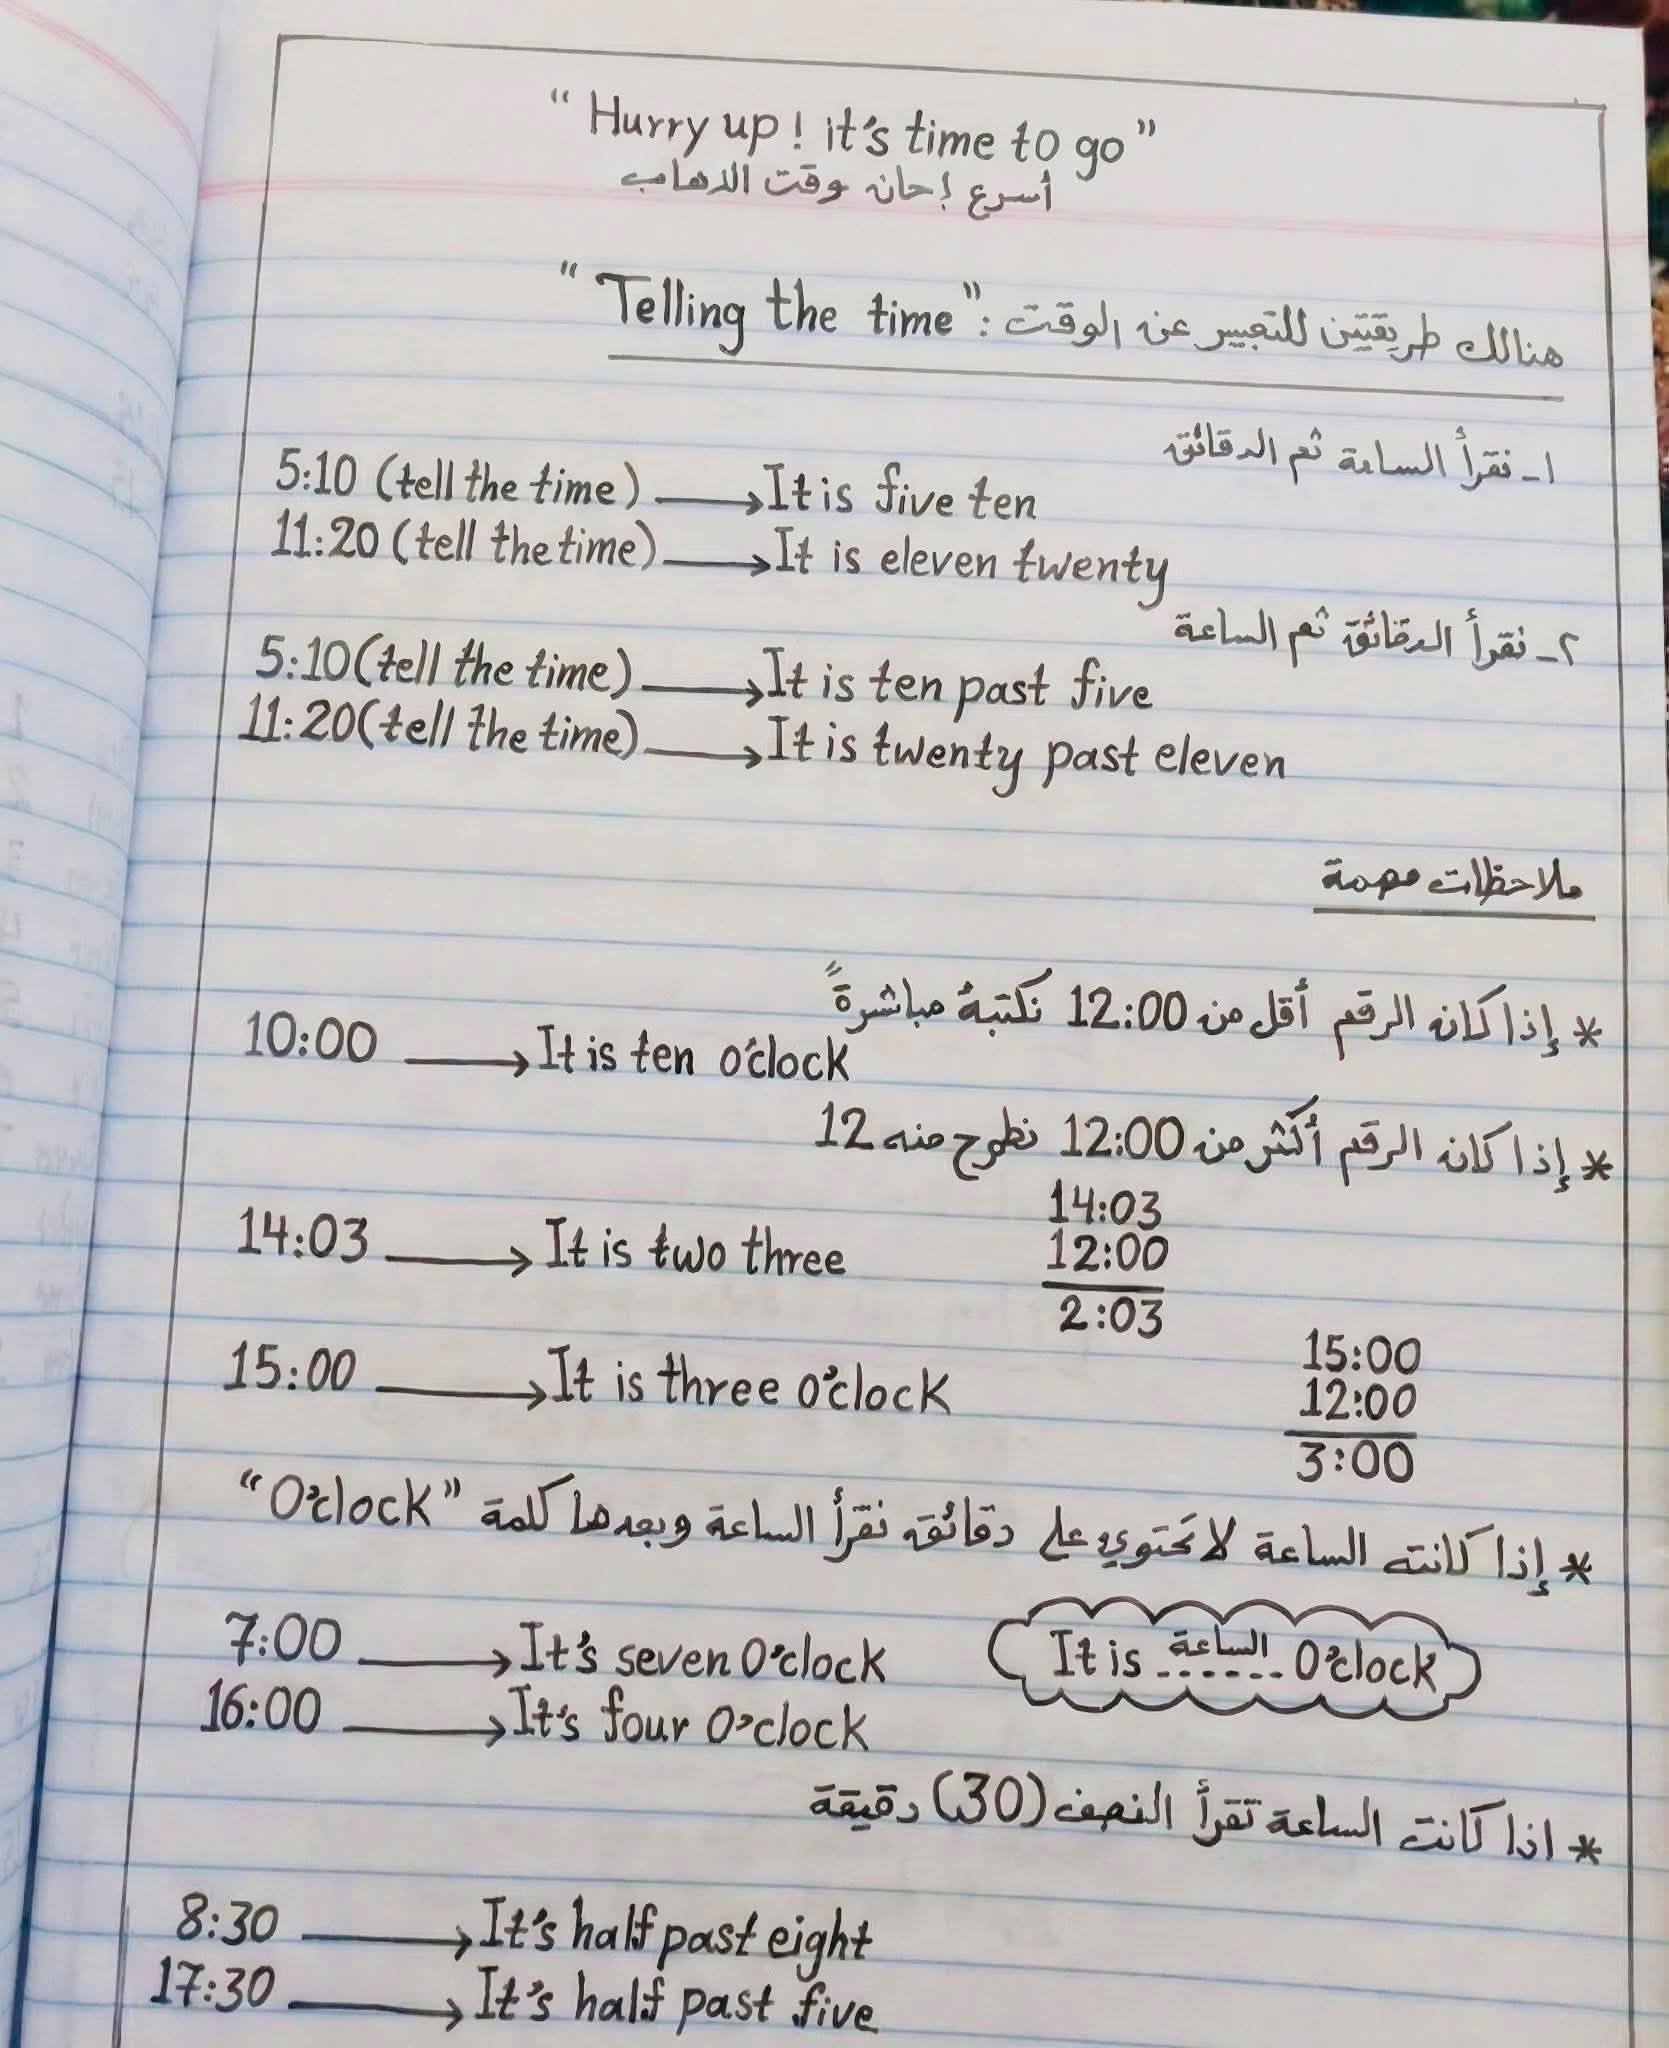 “ Hurry up! it's time to go ”
أسرع ! حان وقت الذهاب
“ Telling the time ” : هنالك طريقتين للتعبير عن الوقت
١ـ نقرأ الساعة ثم الدقائق
5:10 (tell the time) ⟶ It is five ten
11:20 (tell the time) ⟶ It is eleven twenty
٢ـ نقرأ الدقائق ثم الساعة
5:10 (tell the time) ⟶ It is ten past five
11:20 (tell the time) ⟶ It is twenty past eleven
ملاحظات مهمة
* إذا كان الرقم أقل من 12:00 نكتبهُ مباشرةً
10:00 ⟶ It is ten o'clock
* إذا كان الرقم أكثر من 12:00 نطرح منه 12
14:03 ⟶ It is two three
14:03
12:00
2:03
15:00 ⟶ It is three o'clock
15:00
12:00
3:00
* إذا كانت الساعة لا تحتوي على دقائق نقرأ الساعة وبعدها كلمة “O'clock”
7:00 ⟶ It's seven O'clock
It is ...الساعة... O'clock
16:00 ⟶ It's four O'clock
* اذا كانت الساعة تقرأ النصف (30) دقيقة
8:30 ⟶ It's half past eight
17:30 ⟶ It's half past five